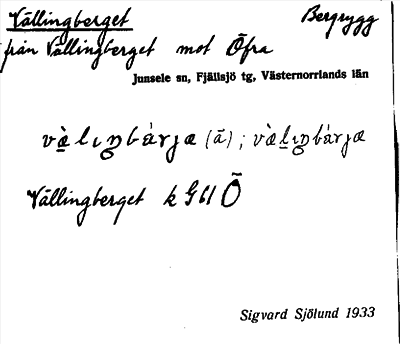 Vällingberget Bergrygg
från Vällingberget mot Öfra
Junsele sn, Fjällsjö tg, Västernorrlands län
Vällingberget k G 61 Ö
Sigvard Sjölund 1933